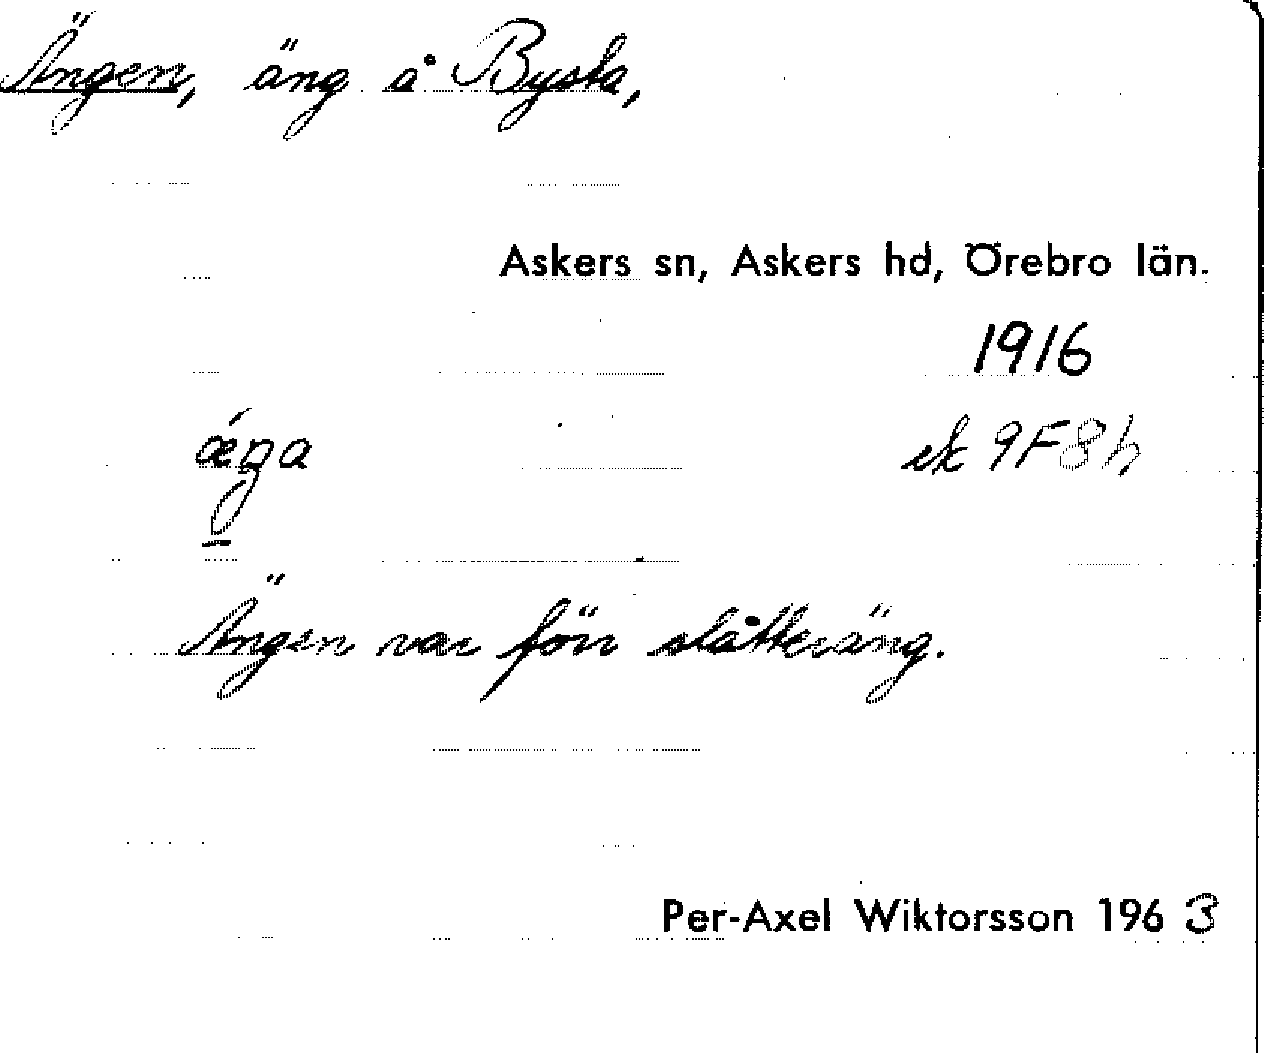 Ängen, äng å Bysta,
Askers sn, Askers hd, Örebro län.
1916
ek 9F8h
Ängen var förr slåtteräng.
Per-Axel Wiktorsson 1963